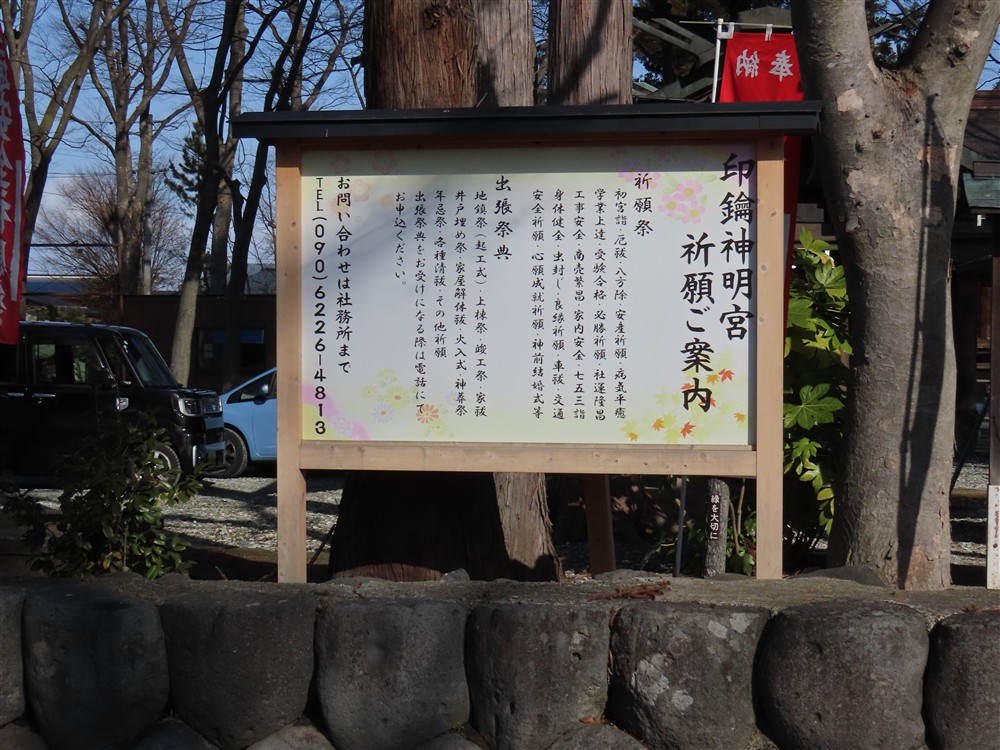 印鑰神明宮
祈願ご案内
祈願祭
初宮詣・厄祓・八方除・安産祈願・病気平癒
学業上達・受験合格・必勝祈願・社運隆昌
工事安全・商売繁昌・家内安全・七五三詣
身体健全・虫封じ・良縁祈願・車祓・交通
安全祈願・心願成就祈願・神前結婚式等
出張祭典
地鎮祭（起工式）・上棟祭・竣工祭・家祓
井戸埋め祭・家屋解体祓・火入式・神葬祭
年忌祭・各種清祓・その他祈願
出張祭典をお受けになる際は電話にて
お申込ください。
お問い合わせは社務所まで
TEL(090)6226-4813
奉納
緑を大切に